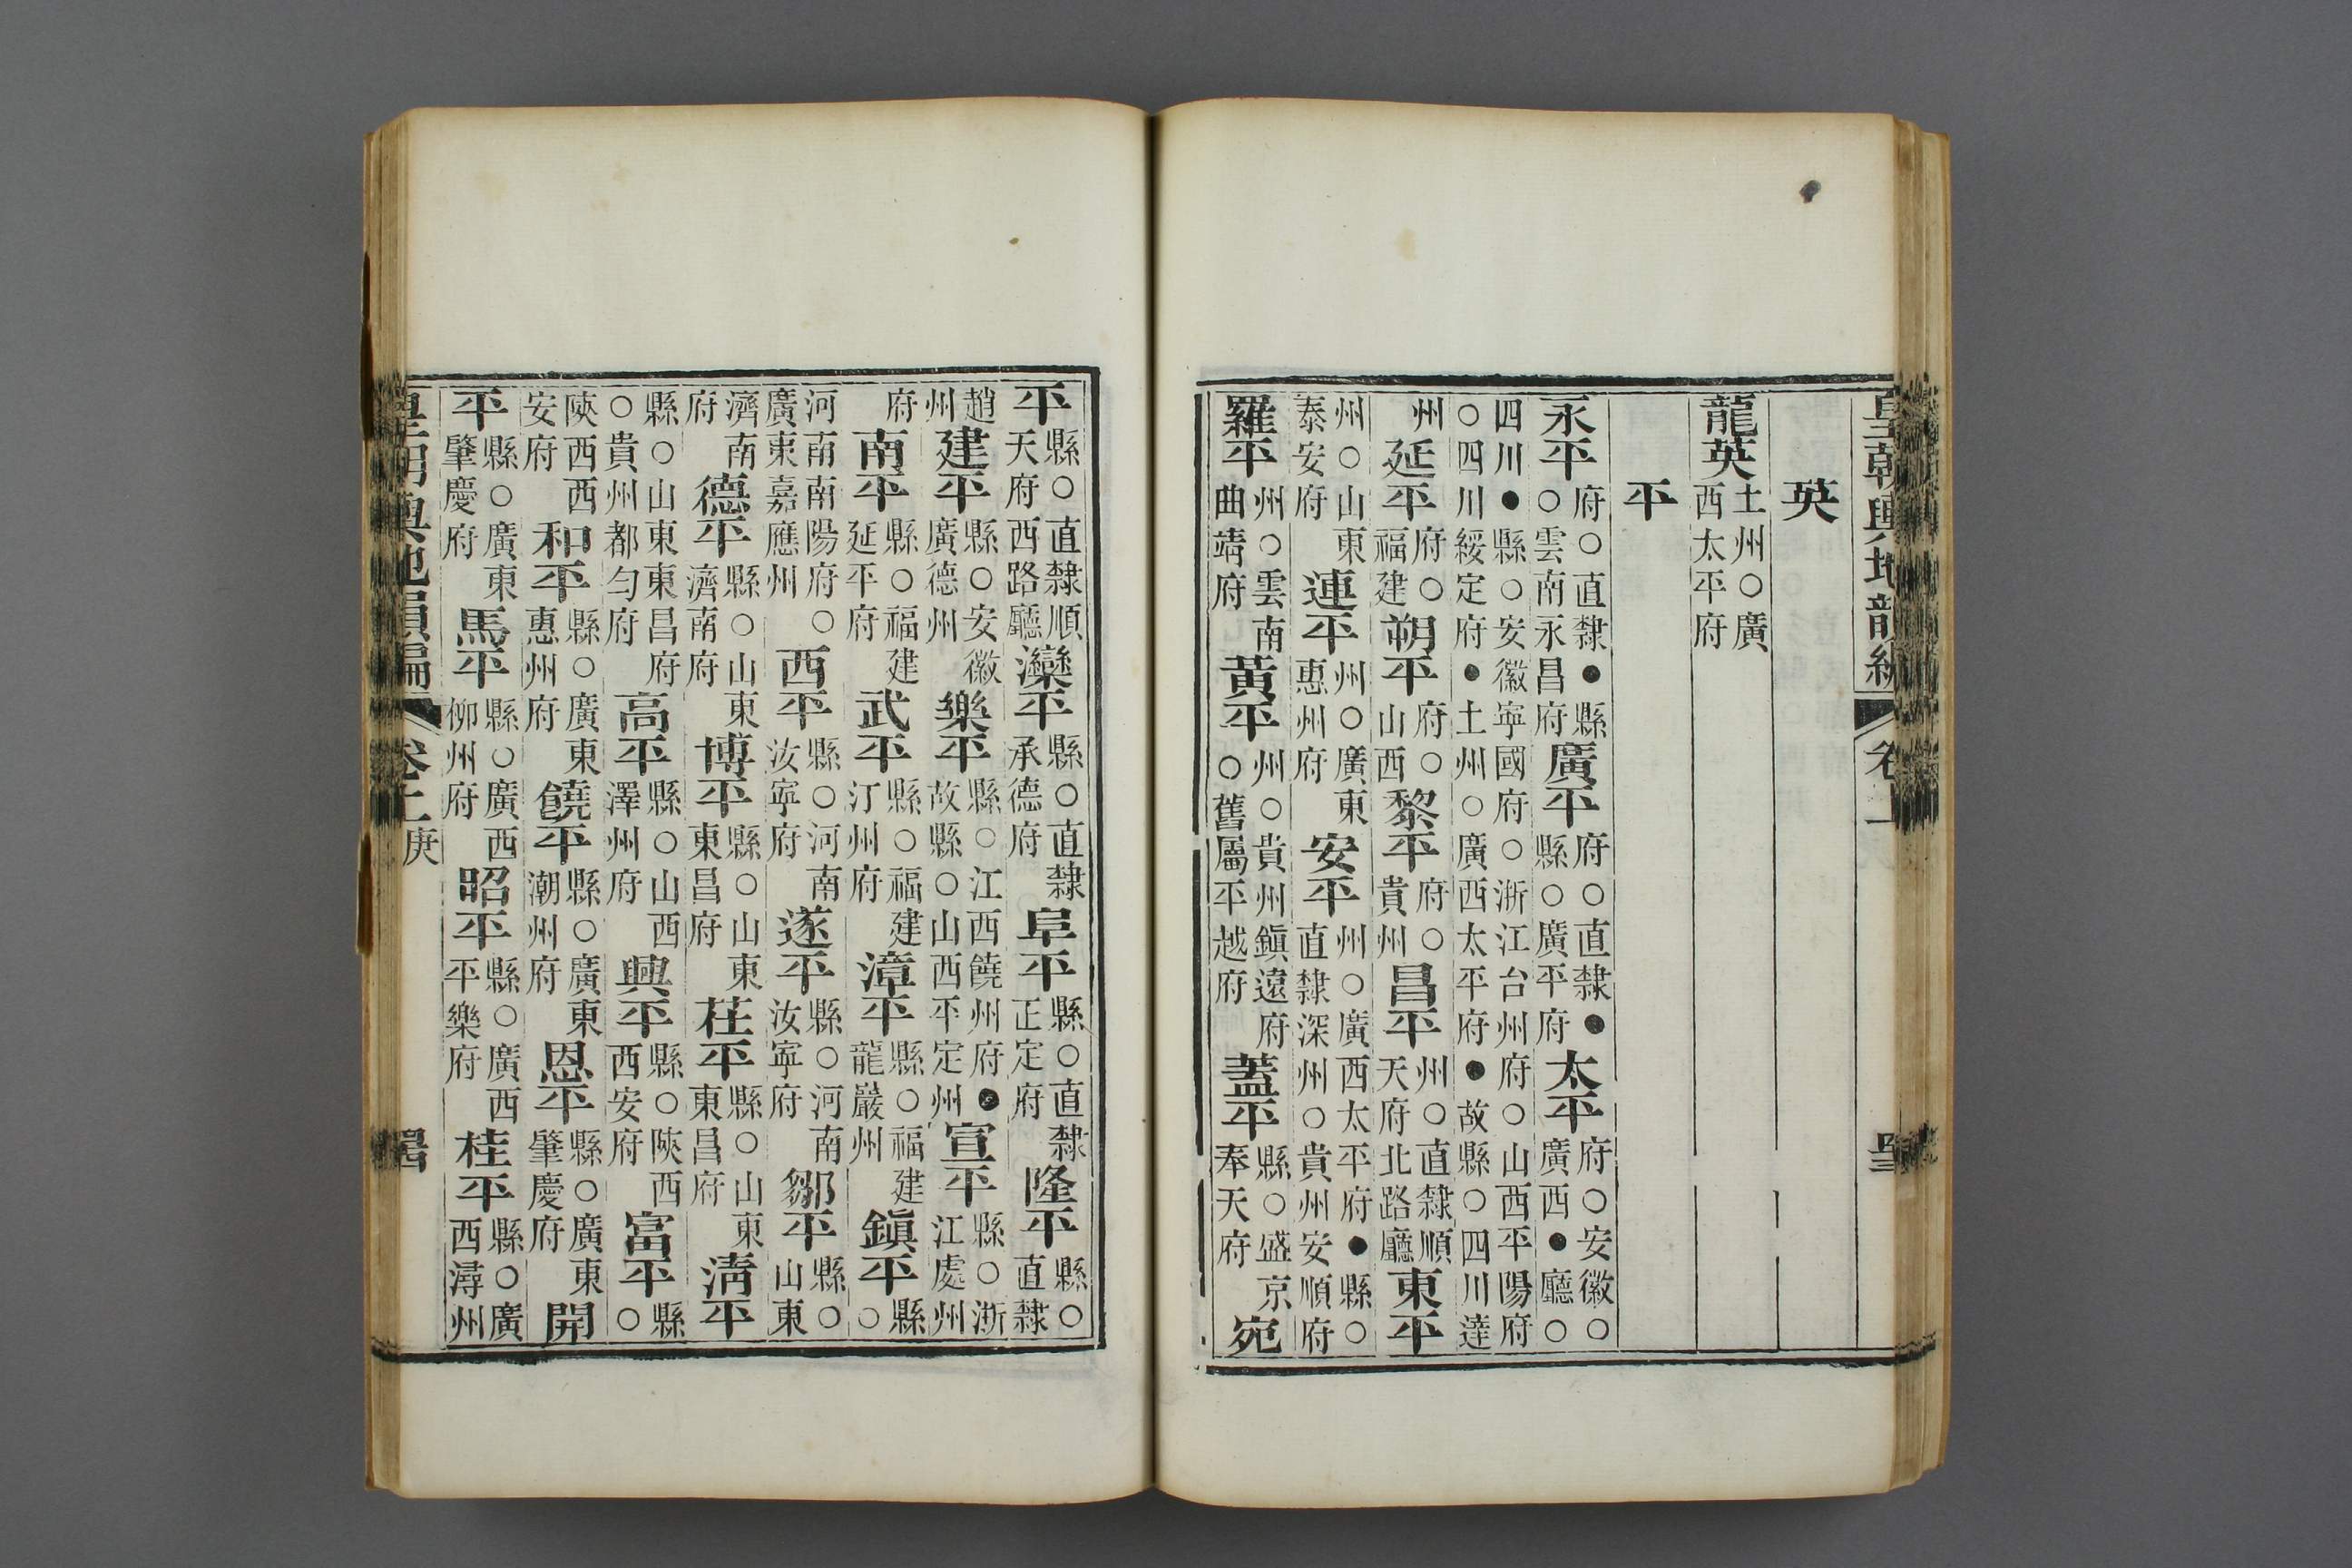 皇朝輿地韻編 卷上
英
龍英土州○廣西太平府
平
永平府○直隸●縣○雲南永昌府廣平府○直隸●縣○廣平府太平府○安徽○廣西●廳○
四川●縣○安徽寧國府○浙江台州府○山西平陽府○四川綏定府●土州○廣西太平府●故縣○四川達
州延平府○福建朔平府○山西黎平府○貴州昌平州○直隸順天府北路廳東平
州○山東泰安府連平州○廣東惠州府安平州○廣西太平府●縣○直隸深州○貴州安順府
羅平州○雲南曲靖府黃平州○貴州鎮遠府○舊屬平越府蓋平縣○盛京奉天府宛
平縣○直隸順天府西路廳灤平縣○直隸承德府阜平縣○直隸正定府隆平縣○直隸
趙州建平縣○安徽廣德州樂平縣○江西饒州府●故縣○山西平定州宣平縣○浙江處州
府南平縣○福建延平府武平縣○福建汀州府漳平縣○福建龍巖州鎮平縣○
河南南陽府○廣東嘉應州西平縣○河南汝寧府遂平縣○河南汝寧府鄒平縣○山東
濟南府德平縣○山東濟南府博平縣○山東東昌府茌平縣○山東東昌府清平
縣○山東東昌府○貴州都勻府高平縣○山西澤州府興平縣○陝西西安府富平縣○
陝西西安府和平縣○廣東惠州府饒平縣○廣東潮州府恩平縣○廣東肇慶府開
平縣○廣東肇慶府馬平縣○廣西柳州府昭平縣○廣西平樂府桂平縣○廣西潯州
皇朝輿地韻編 卷上 庚